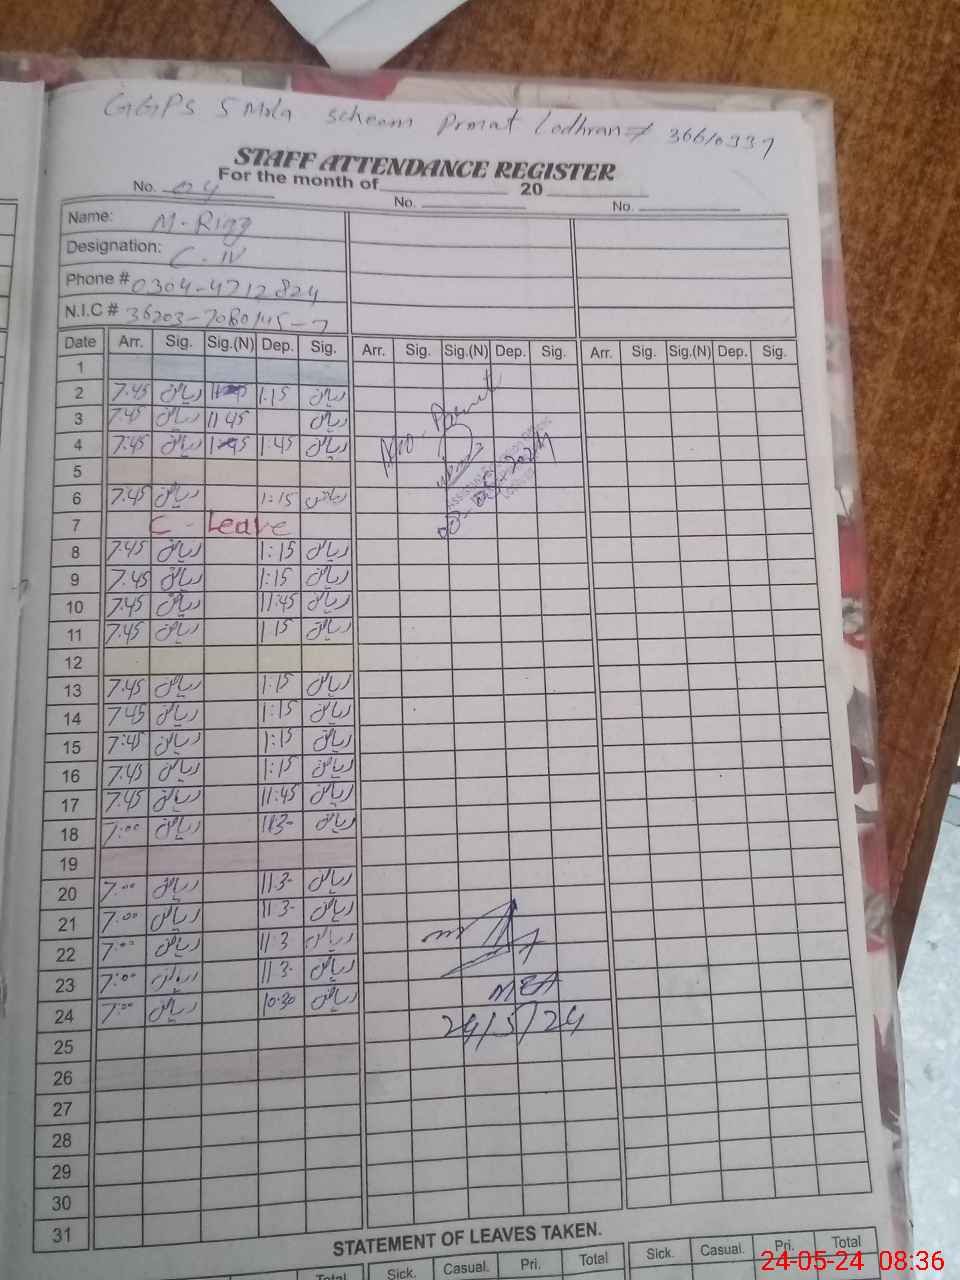 GGPS 5 Mola scheem Prmat Lodhran # 36610339
STAFF ATTENDANCE REGISTER
For the month of 20
No. 04 No. No.
Name: M-Riaz
Designation: C-IV
Phone # 0304-4712824
N.I.C # 36203-7080145-7
Date Arr. Sig. Sig.(N) Dep. Sig. Arr. Sig. Sig.(N) Dep. Sig. Arr. Sig. Sig.(N) Dep. Sig.
1
2 7.45 ریاض 1:15 ریاض
3 7.45 ریاض 11 45 ریاض
4 7.45 ریاض 1:45 ریاض
5
6 7.45 ریاض 1:15 ریاض
7 C - Leave
8 7.45 ریاض 1:15 ریاض
9 7.45 ریاض 1:15 ریاض
10 7.45 ریاض 11:45 ریاض
11 7.45 ریاض 1 15 ریاض
12
13 7.45 ریاض 1:15 ریاض
14 7.45 ریاض 1:15 ریاض
15 7:45 ریاض 1:15 ریاض
16 7.45 ریاض 1:15 ریاض
17 7.45 ریاض 11:45 ریاض
18 7:00 ریاض 113- ریاض
19
20 7:00 ریاض 11.3- ریاض
21 7:00 ریاض 11.3- ریاض
22 7:00 ریاض 11:3 ریاض
23 7:00 ریاض 11 3- ریاض
24 7:00 ریاض 10:30 ریاض
MEA
24/5/24
25
26
27
28
29
30
31
STATEMENT OF LEAVES TAKEN.
Total Sick. Casual. Pri. Total Sick. Casual. Pri. Total
24-05-24 08:36